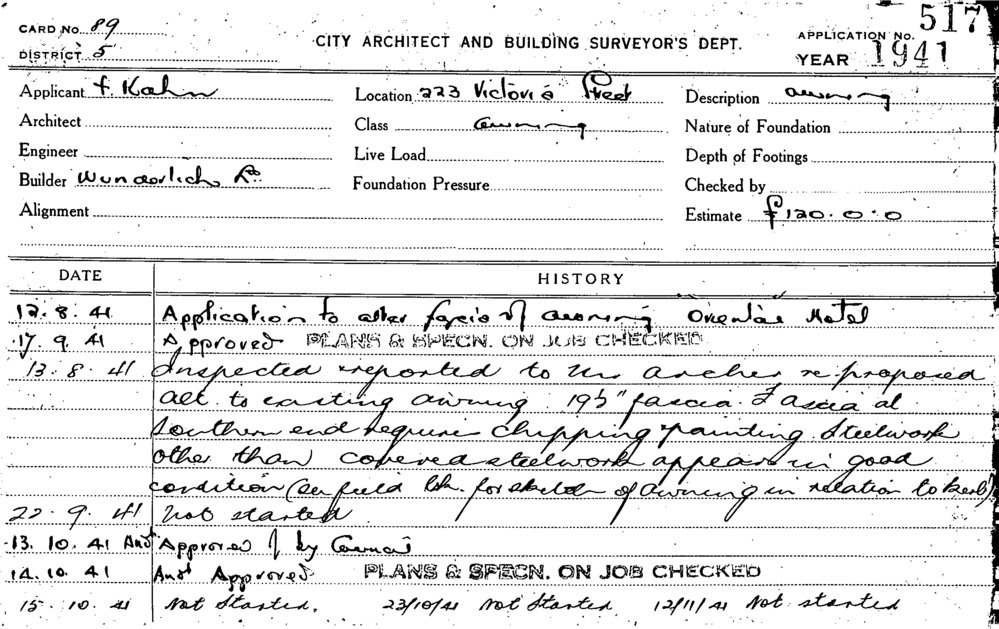 CARD No. 89
DISTRICT 5
CITY ARCHITECT AND BUILDING SURVEYOR'S DEPT.
APPLICATION No. 517
YEAR 1941
Applicant F Kahn
Location 223 Victoria Street
Description awning
Architect
Class awning
Nature of Foundation
Engineer
Live Load
Depth of Footings
Builder Wunderlich
Foundation Pressure
Checked by
Alignment
Estimate £120.0.0
DATE HISTORY
12.8.41 Application to alter fascia of awning Oriental Hotel
17.9.41 Approved PLANS & SPECN. ON JOB CHECKED
13.8.41 Inspected & reported to Mr Archer re proposed
alt to existing awning fascia Fascia at
Southern end require chipping & painting Steelwork
other than covered steelwork appears in good
condition (see field bk. for sketch of awning in relation to kerb)
22.9.41 Not started
13.10.41 Amdt Approved by Council
14.10.41 Amdt Approved PLANS & SPECN. ON JOB CHECKED
15.10.41 Not Started. 23/10/41 Not Started 12/11/41 Not started